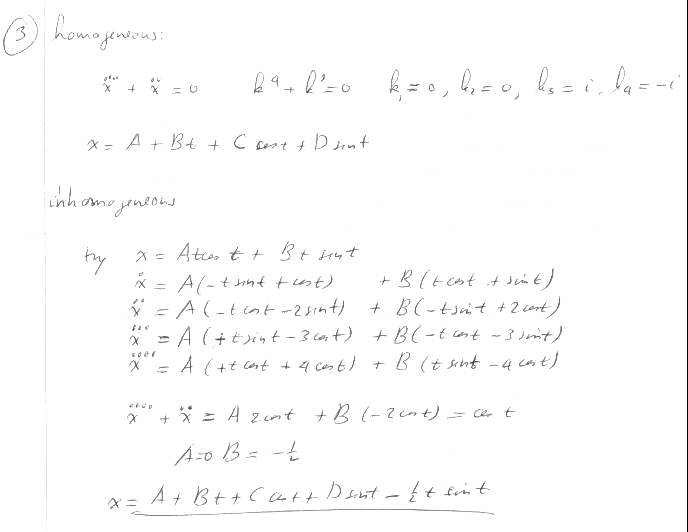 ③ homogeneous:
ẍ̈ + ẍ = 0 k⁴ + k² = 0 k₁ = 0, k₂ = 0, k₃ = i, k₄ = -i
x = A + Bt + C cos t + D sin t
inhomogeneous
try x = At cos t + Bt sin t
ẋ = A(-t sint + cost) + B(t cost + sint)
ẍ = A(-t cost - 2 sint) + B(-t sint + 2 cost)
x⃛ = A(+t sint - 3 cost) + B(-t cost - 3 sint)
x⃜ = A(+t cost + 4 cost) + B(t sint - 4 cost)
x⃜ + ẍ = A 2 cost + B(-2 cost) = cos t
A=0 B = -½
x = A + Bt + C cost + D sint - ½ t sint